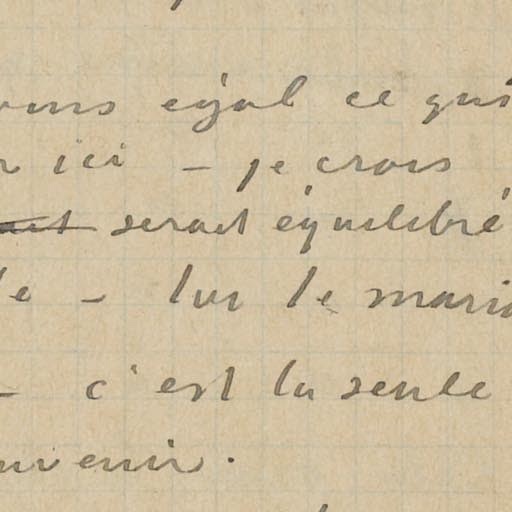 égal ce qui
ici – je crois
serait équilibré
– lui le mari
– c'est la seule
venir.